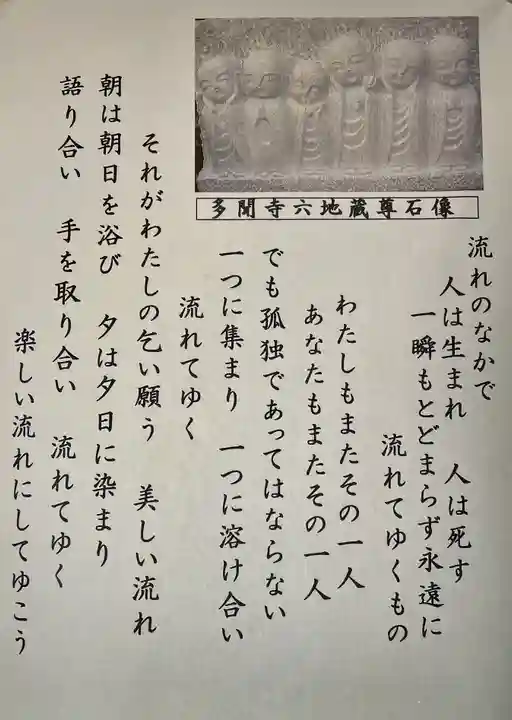 多聞寺六地蔵尊石像
流れのなかで
人は生まれ　人は死す
一瞬もとどまらず永遠に
流れてゆくもの
わたしもまたその一人
あなたもまたその一人
でも孤独であってはならない
一つに集まり　一つに溶け合い
流れてゆく
それがわたしの乞い願う　美しい流れ
朝は朝日を浴び　夕は夕日に染まり
語り合い　手を取り合い　流れてゆく
楽しい流れにしてゆこう